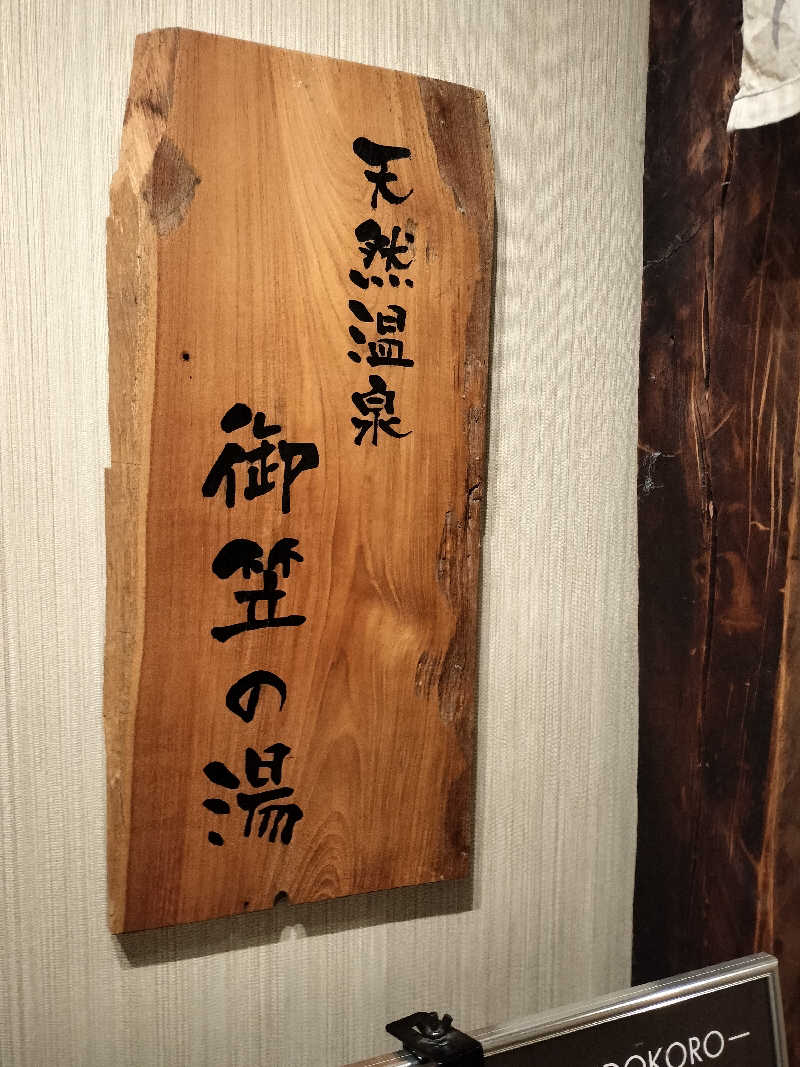 天然温泉
御笠の湯
DOKORO—